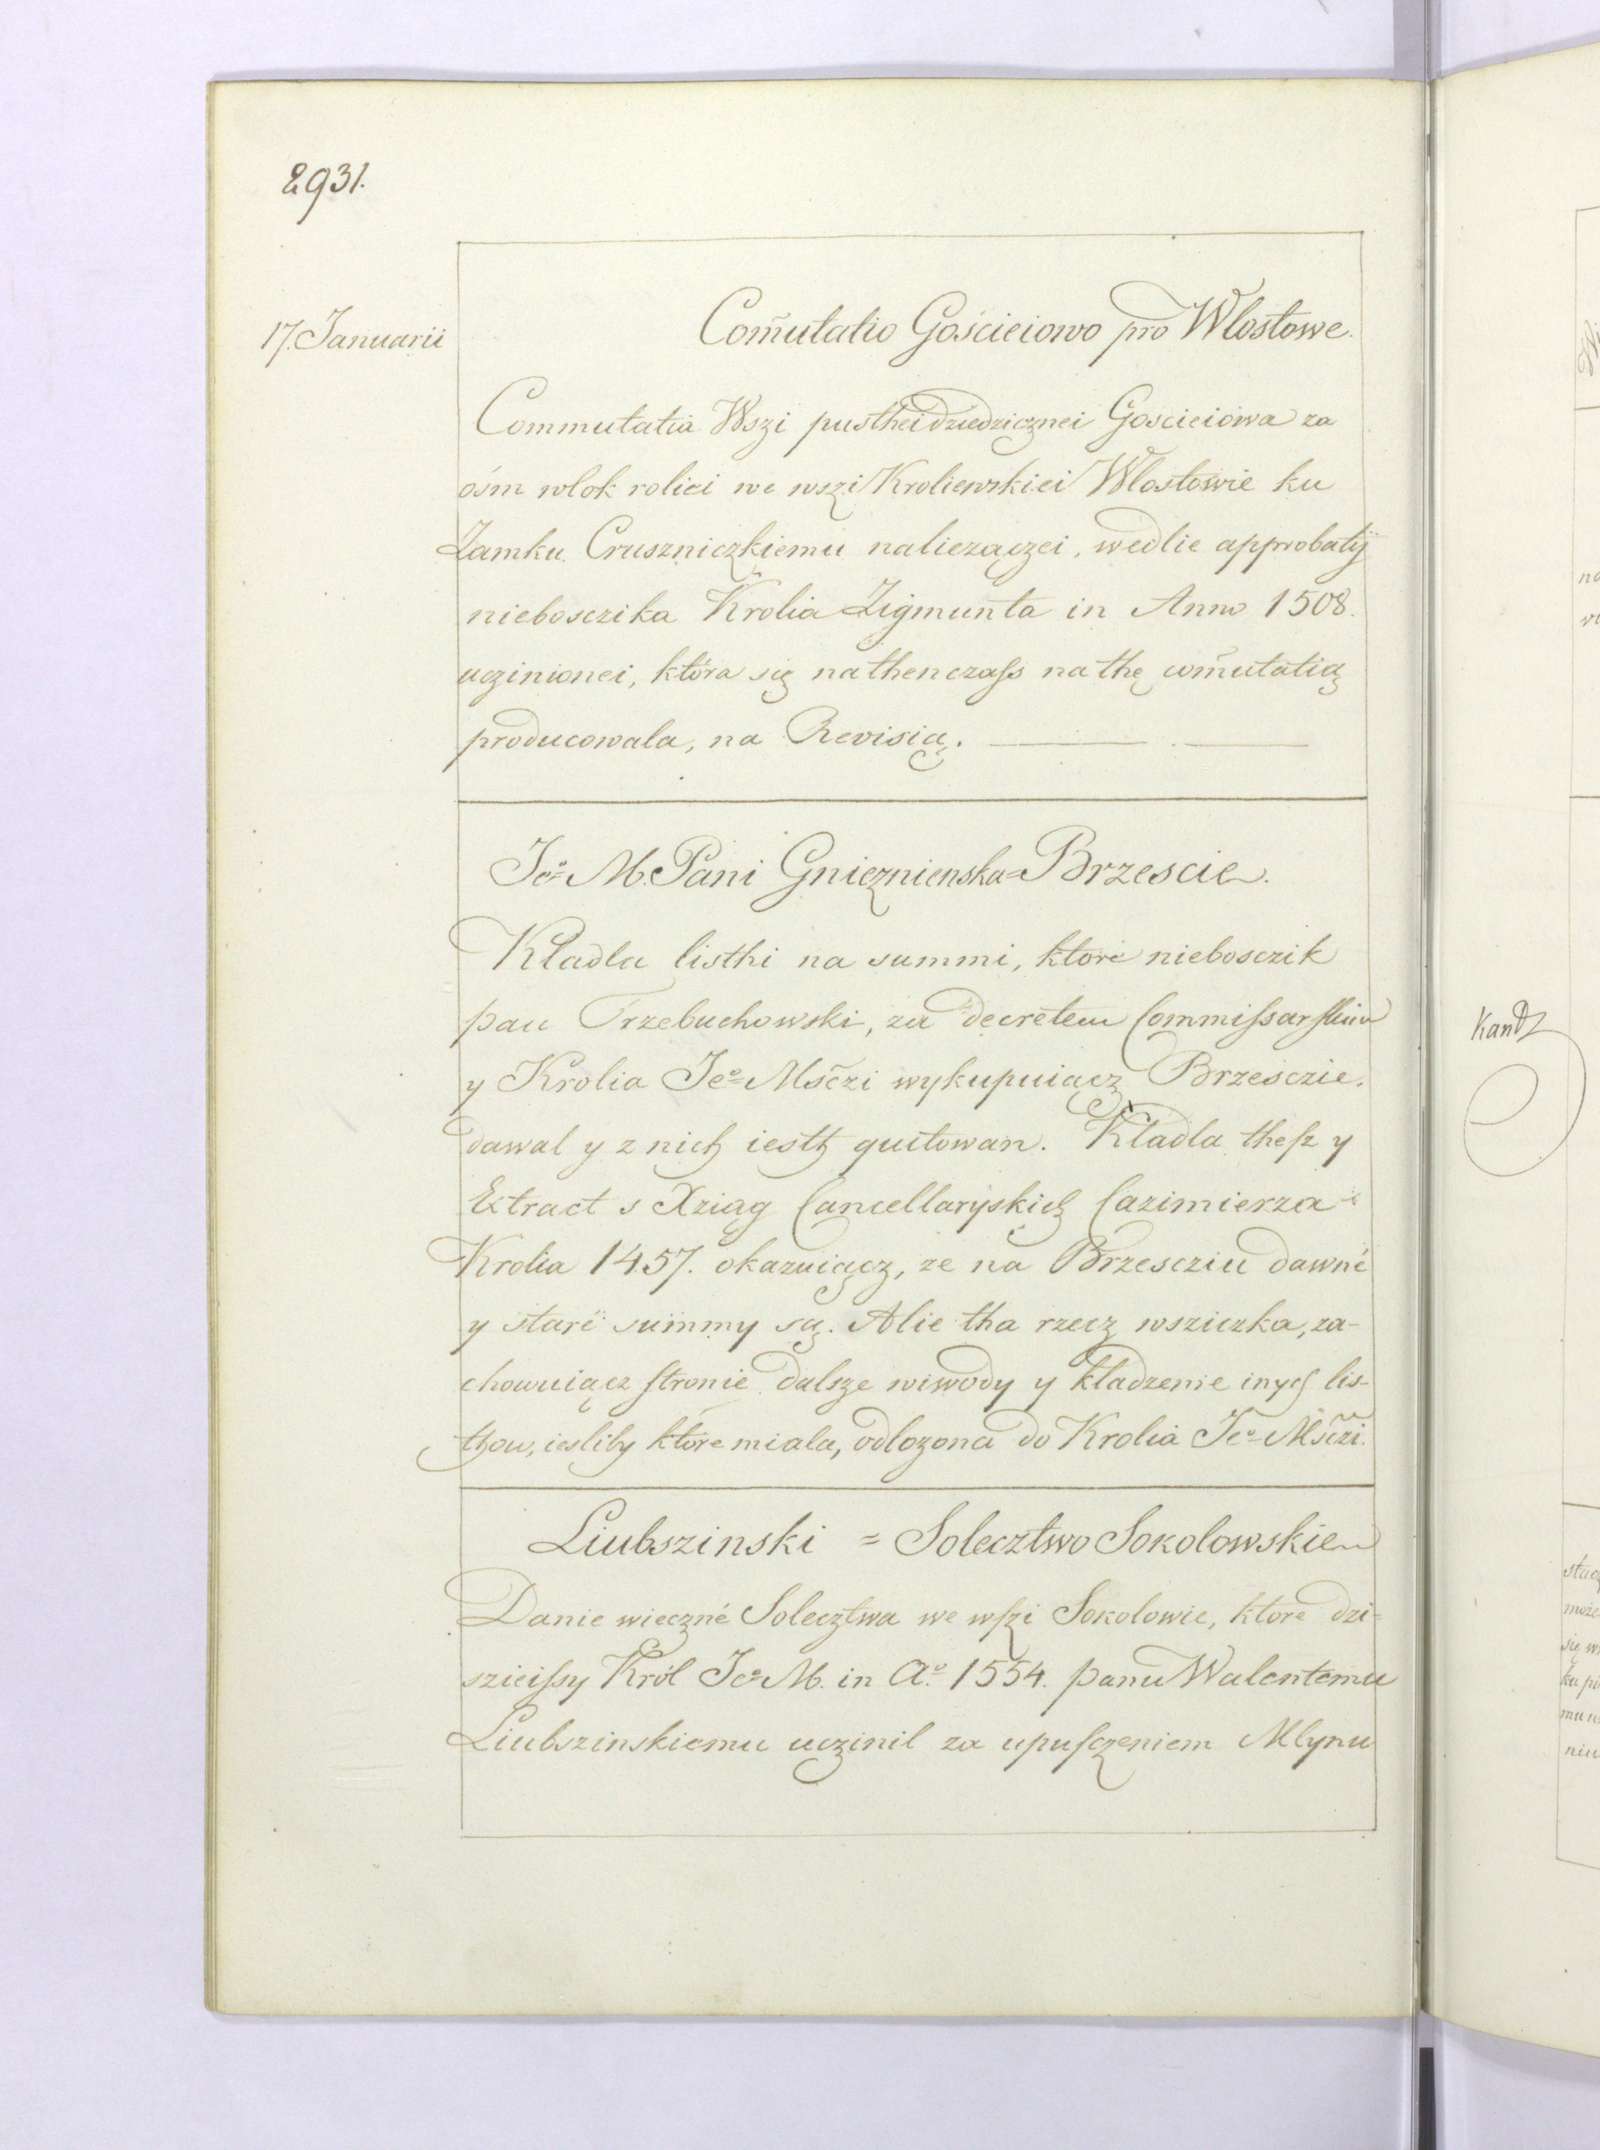 2931.
17. Januarii
Com̃utatio Gościeiowo pro Wlostowe.
Commutatia Wszi pusthei dziedzicznei Goscieiowa za
ośm wlok roliei we wszi Kroliewskiei Wlostowie ku
Zamku Cruszniczkiemu naliezączei, wedlie approbatÿ
niebosczika Krolia Zigmunta in Anno 1508.
uczinionei, która się nathenczaſs na thę com̃utatią
producowala, na Revisią.
Jeº M. Pani Gnieznienska = Brzescie.
Kladla listhi na summi, ktore niebosczik
pan Trzebuchowski, za decretem Commiſsarſkim
y Krolia Jeº Mśczi wykupuiącz Brzesczie.
dawal y z nich iesth quitowan. Kladla theſz y
Extract s Xziąg Cancellaryskich Cazimierza
Krolia 1457. okazuiącz, ze na Brzescziu dawné
y staré summy są. Alie tha rzecz wsziczka, za-
chowuiącz ſtronie dalsze wiwody y kladzenie inych lis-
thow, iesliby które miala, odlozona do Krolia Jeº Mśczi.
Liubszinski = Solecztwo Sokolowskie
Danie wieczné Solecztwa we wſzi Sokolowie, ktore dzi-
szieiſsy Król Jeº M. in Aº 1554. panu Walentemu
Liubszinskiemu uczinil za upuſczeniem Mlynu